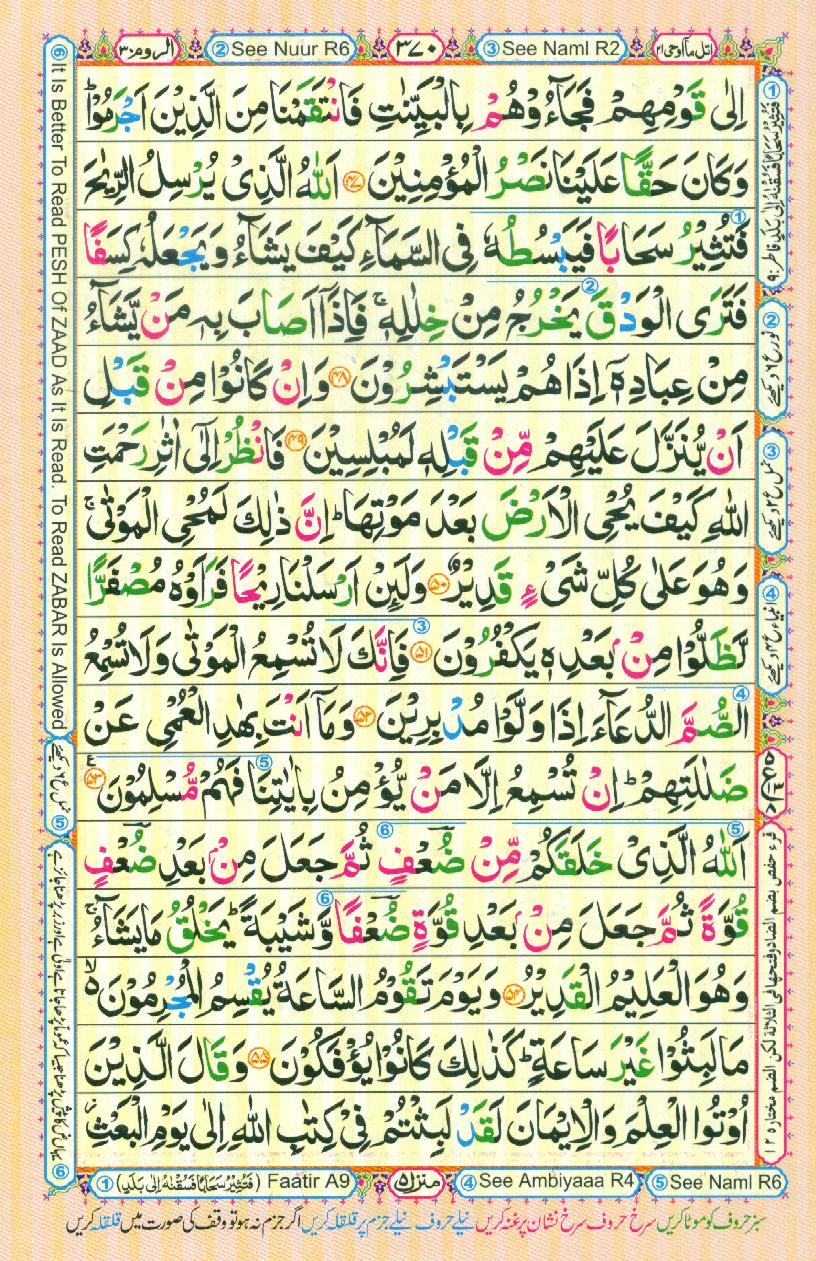 اتل ماۤ اوحی ۲۱
③ See Naml R2
۳۷۰
② See Nuur R6
الروم ۳۰
اِلٰى قَوْمِهِمْ فَجَآءُوْهُمْ بِالْبَيِّنٰتِ فَانْتَقَمْنَا مِنَ الَّذِيْنَ اَجْرَمُوْا ؕ
وَكَانَ حَقًّا عَلَيْنَا نَصْرُ الْمُؤْمِنِيْنَ ﴿۴۷﴾ اَللّٰهُ الَّذِيْ يُرْسِلُ الرِّيٰحَ
فَتُثِيْرُ سَحَابًا فَيَبْسُطُهٗ فِي السَّمَآءِ كَيْفَ يَشَآءُ وَيَجْعَلُهٗ كِسَفًا
فَتَرَى الْوَدْقَ يَخْرُجُ مِنْ خِلٰلِهٖ ۚ فَاِذَاۤ اَصَابَ بِهٖ مَنْ يَّشَآءُ
مِنْ عِبَادِهٖۤ اِذَا هُمْ يَسْتَبْشِرُوْنَ ﴿۴۸﴾ وَاِنْ كَانُوْا مِنْ قَبْلِ
اَنْ يُّنَزَّلَ عَلَيْهِمْ مِّنْ قَبْلِهٖ لَمُبْلِسِيْنَ ﴿۴۹﴾ فَانْظُرْ اِلٰۤى اٰثٰرِ رَحْمَتِ
اللّٰهِ كَيْفَ يُحْيِ الْاَرْضَ بَعْدَ مَوْتِهَا ؕ اِنَّ ذٰلِكَ لَمُحْيِ الْمَوْتٰى ۚ
وَهُوَ عَلٰى كُلِّ شَيْءٍ قَدِيْرٌ ﴿۵۰﴾ وَلَئِنْ اَرْسَلْنَا رِيْحًا فَرَاَوْهُ مُصْفَرًّا
لَّظَلُّوْا مِنْۢ بَعْدِهٖ يَكْفُرُوْنَ ﴿۵۱﴾ فَاِنَّكَ لَا تُسْمِعُ الْمَوْتٰى وَلَا تُسْمِعُ
الصُّمَّ الدُّعَآءَ اِذَا وَلَّوْا مُدْبِرِيْنَ ﴿۵۲﴾ وَمَاۤ اَنْتَ بِهٰدِ الْعُمْيِ عَنْ
ضَلٰلَتِهِمْ ؕ اِنْ تُسْمِعُ اِلَّا مَنْ يُّؤْمِنُ بِاٰيٰتِنَا فَهُمْ مُّسْلِمُوْنَ ﴿۵۳﴾
اَللّٰهُ الَّذِيْ خَلَقَكُمْ مِّنْ ضُعْفٍ ثُمَّ جَعَلَ مِنْۢ بَعْدِ ضُعْفٍ
قُوَّةً ثُمَّ جَعَلَ مِنْۢ بَعْدِ قُوَّةٍ ضُعْفًا وَّشَيْبَةً ؕ يَخْلُقُ مَا يَشَآءُ ۚ
وَهُوَ الْعَلِيْمُ الْقَدِيْرُ ﴿۵۴﴾ وَيَوْمَ تَقُوْمُ السَّاعَةُ يُقْسِمُ الْمُجْرِمُوْنَ ۙ
مَا لَبِثُوْا غَيْرَ سَاعَةٍ ؕ كَذٰلِكَ كَانُوْا يُؤْفَكُوْنَ ﴿۵۵﴾ وَقَالَ الَّذِيْنَ
اُوْتُوا الْعِلْمَ وَالْاِيْمَانَ لَقَدْ لَبِثْتُمْ فِيْ كِتٰبِ اللّٰهِ اِلٰى يَوْمِ الْبَعْثِ ؗ
① فَتُثِيْرُ سَحَابًا فَسُقْنٰهُ اِلٰى بَلَدٍ فاطر: ۹
② نور ع ۶ دیکھئے
③ نمل ع ۲ دیکھئے
④ انبیاء ع ۴ دیکھئے
قرء حفص بضم الضاد وفتحها فى الثلاثة لكن الضم مختاره ۱۲
⑥ It Is Better To Read PESH Of ZAAD As It Is Read. To Read ZABAR Is Allowed
⑤ نمل ع ۶ دیکھئے
① (فَتُثِيْرُ سَحَابًا فَسُقْنٰهُ اِلٰى بَلَدٍ) Faatir A9
منزل ۵
④ See Ambiyaaa R4
⑤ See Naml R6
سبز حروف کو موٹا کریں سرخ حروف سرخ نشان پر غنہ کریں نیلے حروف نیلے جزم پر قلقلہ کریں اگر جزم نہ ہو تو وقف کی صورت میں قلقلہ کریں